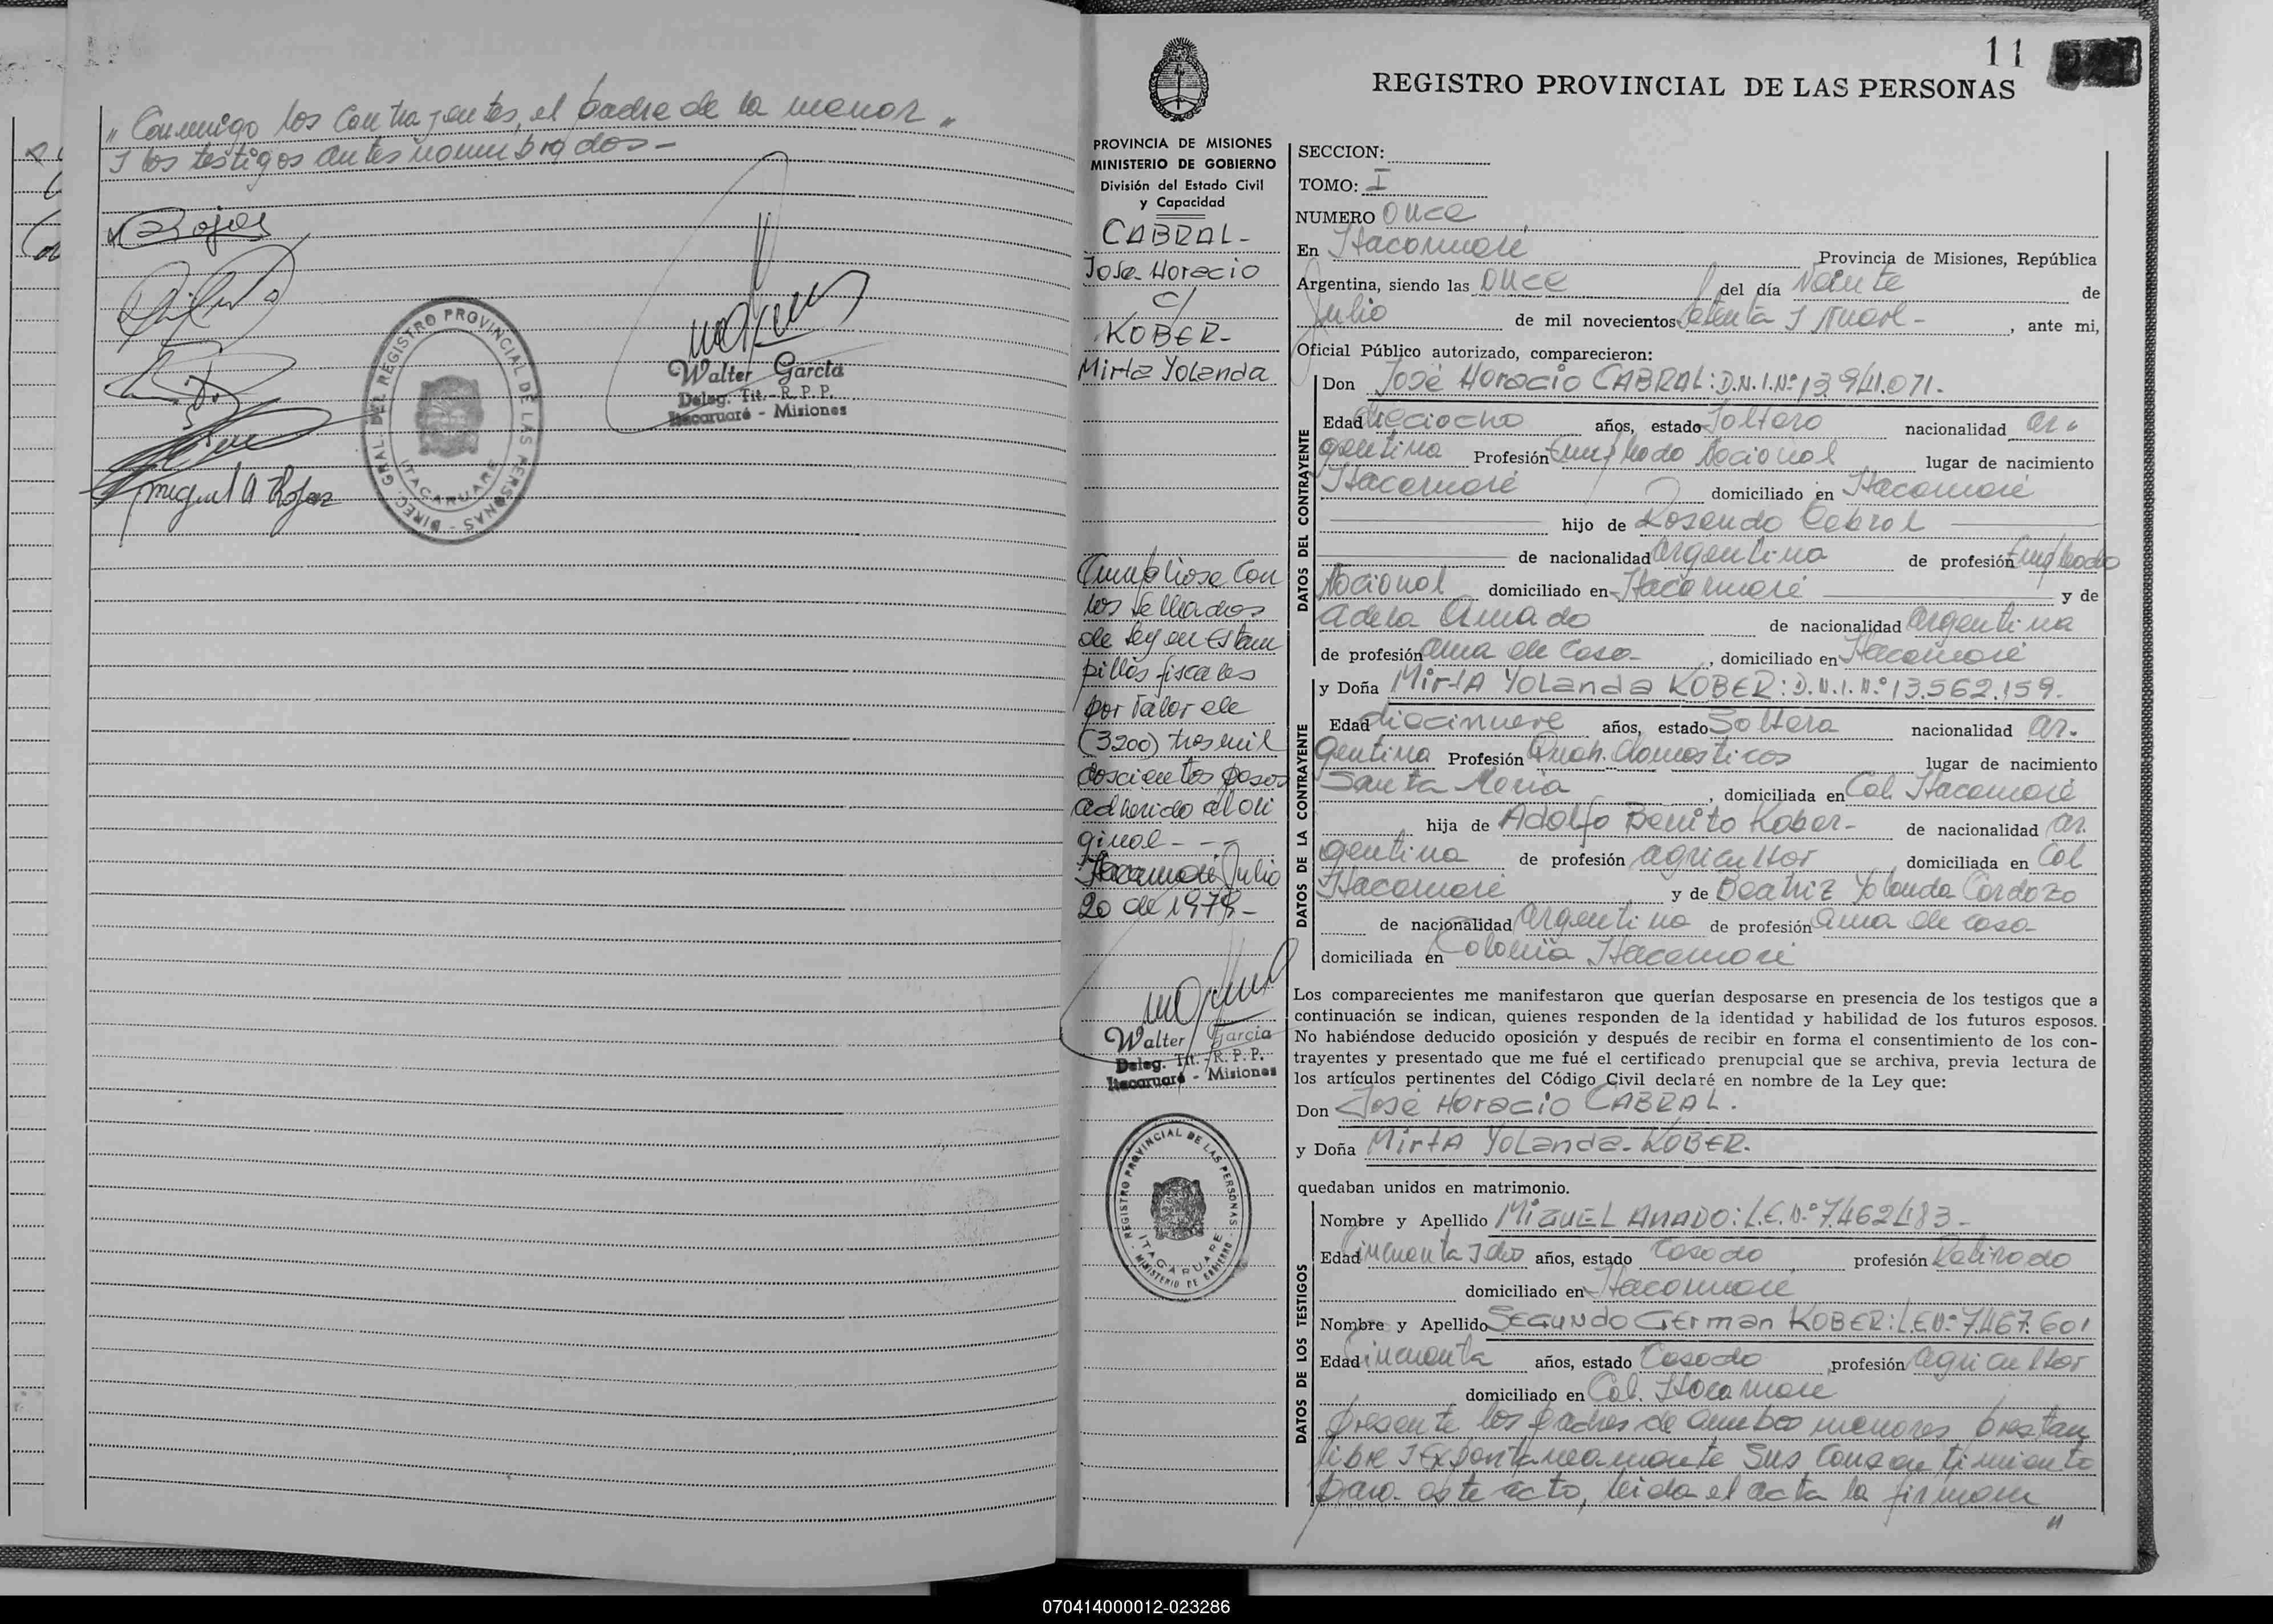 " Conmigo los Contrayentes, el padre de la menor "
y los testigos antes nombrados -
Rojas
Miguel A Rojas
DIREC. GRAL. DEL REGISTRO PROVINCIAL DE LAS PERSONAS -
ITACARUARE
Walter Garcia
Deleg. Tit. - R. P. P.
Itacaruaré - Misiones
11
REGISTRO PROVINCIAL DE LAS PERSONAS
PROVINCIA DE MISIONES
MINISTERIO DE GOBIERNO
División del Estado Civil
y Capacidad
CABRAL-
José Horacio
c/
KOBER-
Mirta Yolanda
Cumpliose Con
los sellados
de ley en Estam
pillas fiscales
por valor de
(3200) tres mil
doscientos pesos
adherido al ori
ginal - - -
Itacaruaré Julio
20 de 1979-
Walter Garcia
Deleg. Tit. R. P. P.
Itacaruaré - Misiones
REGISTRO PROVINCIAL DE LAS PERSONAS - MINISTERIO DE GOBIERNO -
ITACARUARE
SECCION:
TOMO: I
NUMERO Once
En Itacaruaré Provincia de Misiones, República
Argentina, siendo las Once del día Veinte de
Julio de mil novecientos Setenta y Nueve - , ante mi,
Oficial Público autorizado, comparecieron:
DATOS DEL CONTRAYENTE
Don José Horacio CABRAL: D.N.I.Nº 13.941.071.
Edad dieciocho años, estado Soltero nacionalidad ar-
gentina Profesión Empleado Nacional lugar de nacimiento
Itacaruaré domiciliado en Itacaruaré
hijo de Rosendo Cabral
de nacionalidad argentina de profesión Empleado
Nacional domiciliado en Itacaruaré y de
Adela Amado de nacionalidad argentina
de profesión ama de Casa , domiciliado en Itacaruaré
DATOS DE LA CONTRAYENTE
y Doña Mirta Yolanda KOBER: D.N.I.Nº 13.562.159.
Edad diecinueve años, estado Soltera nacionalidad ar-
gentina Profesión Queh. domesticos lugar de nacimiento
Santa Maria , domiciliada en Col. Itacaruaré
hija de Adolfo Benito Kober- de nacionalidad ar.
gentina de profesión agricultor domiciliada en Col
Itacaruaré y de Beatriz Yolanda Cardozo
de nacionalidad argentina de profesión ama de casa
domiciliada en Colonia Itacaruaré
Los comparecientes me manifestaron que querían desposarse en presencia de los testigos que a
continuación se indican, quienes responden de la identidad y habilidad de los futuros esposos.
No habiéndose deducido oposición y después de recibir en forma el consentimiento de los con-
trayentes y presentado que me fué el certificado prenupcial que se archiva, previa lectura de
los artículos pertinentes del Código Civil declaré en nombre de la Ley que:
Don José Horacio CABRAL.
y Doña Mirta Yolanda- KOBER.
quedaban unidos en matrimonio.
DATOS DE LOS TESTIGOS
Nombre y Apellido MiguEL AMADO: L.E.N.º 7.462.483-
Edad Cincuenta y dos años, estado Casado profesión Retirado
domiciliado en Itacaruaré
Nombre y Apellido SEGUNdo GErman KOBER: L.E.Nº 7.467.601
Edad Cincuenta años, estado Casado profesión agricultor
domiciliado en Col. Itacaruaré
presente los padres de ambos menores prestan
libre y Expontaneamente Sus Consentimiento
para este acto, leida el acta la firman
"
070414000012-023286